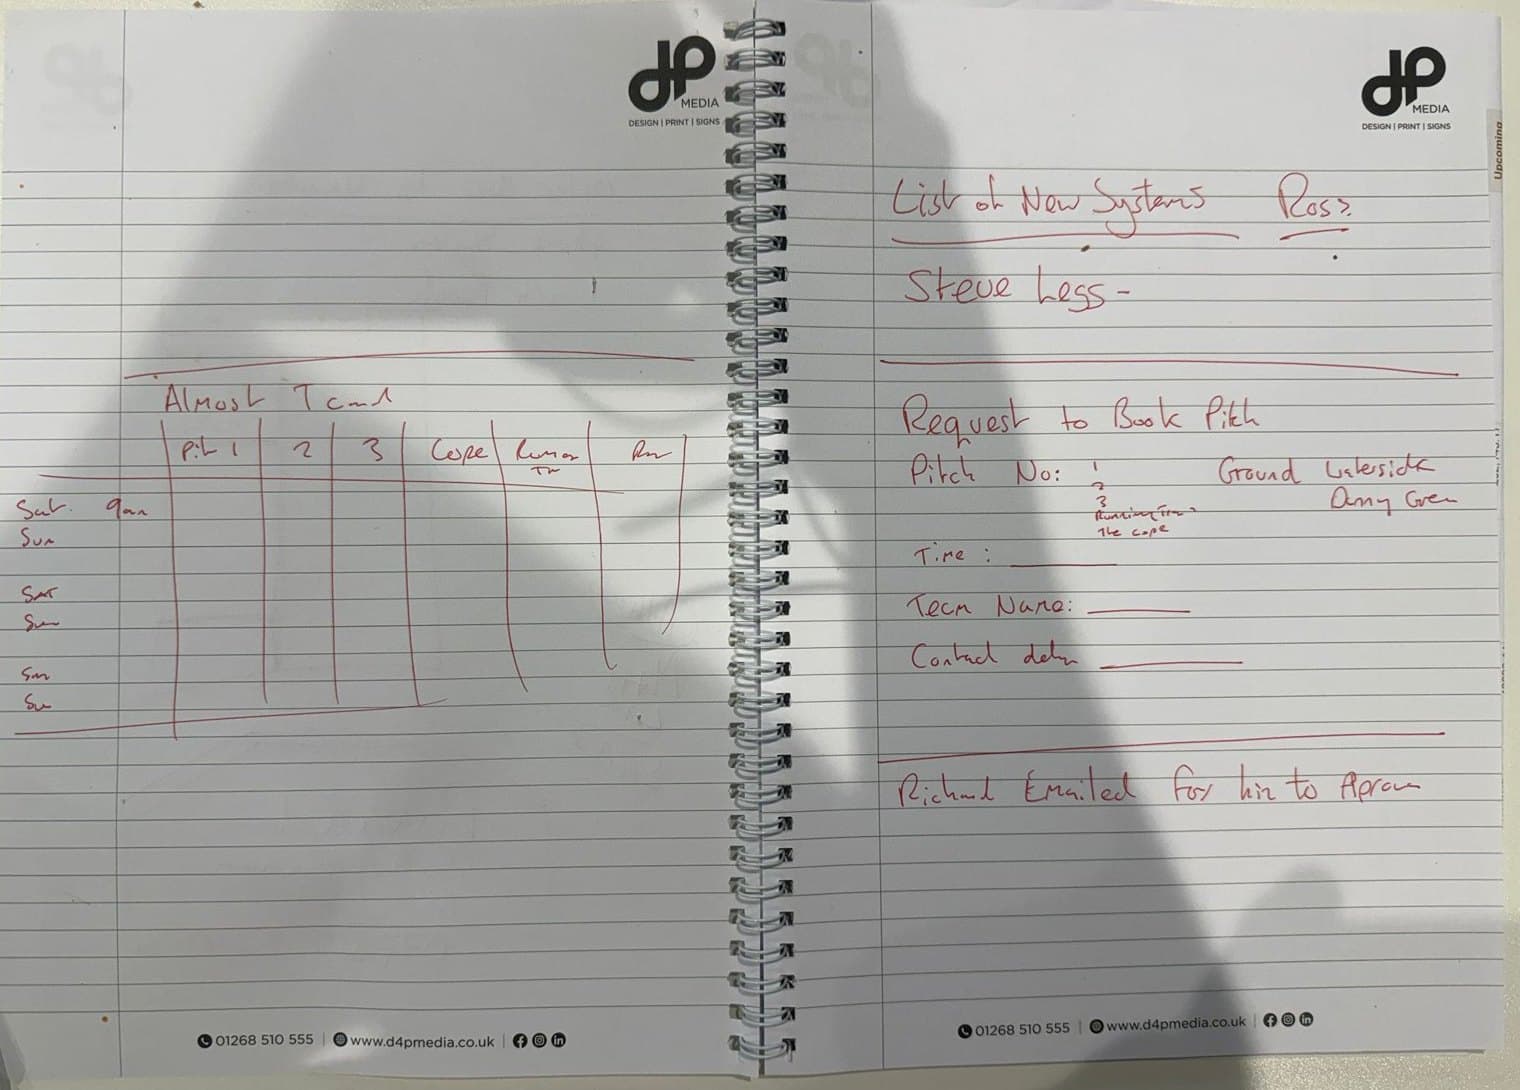 dp
MEDIA
DESIGN | PRINT | SIGNS
Almost T card
Pit 1 2 3 Cope
Sat. 9am
Sun
Sat
Sun
01268 510 555 | www.d4pmedia.co.uk
dp
MEDIA
DESIGN | PRINT | SIGNS
Upcoming
List of New Systems Ross
Steve Legg -
Request to Book Pitch
Pitch No: 1 Ground Waterside
2 Canvey Green
3
Running Tra
The Cope
Time :
Team Name:
Contact
Richard Emailed For him to Aprove
01268 510 555 | www.d4pmedia.co.uk